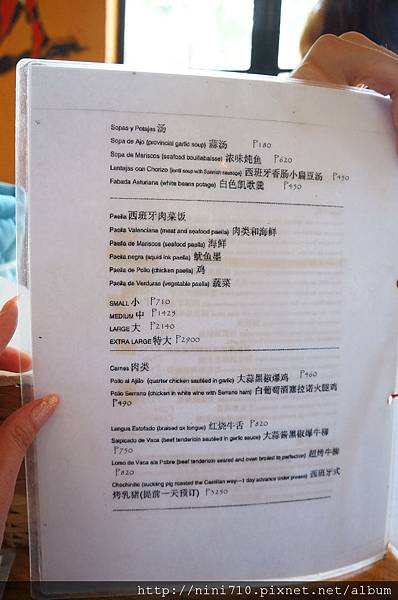 Sopas y Potajes 汤
Sopa de Ajo (provincial garlic soup) 蒜汤 ₱180
Sopa de Mariscos (seafood bouillabaisse) 浓味炖鱼 ₱620
Lentejas con Chorizo (lentil soup with Spanish sausage) 西班牙香肠小扁豆汤 ₱450
Fabada Asturiana (white beans potage) 白色凯歌羹 ₱450
Paella 西班牙肉菜饭
Paella Valenciana (meat and seafood paella) 肉类和海鲜
Paella de Mariscos (seafood paella) 海鲜
Paella negra (squid ink paella) 鱿鱼墨
Paella de Pollo (chicken paella) 鸡
Paella de Verduras (vegetable paella) 蔬菜
SMALL 小 ₱710
MEDIUM 中 ₱1425
LARGE 大 ₱2140
EXTRA LARGE 特大 ₱2900
Carnes 肉类
Pollo al Ajillo (quarter chicken sautéed in garlic) 大蒜黑椒爆鸡 ₱460
Pollo Serrano (chicken in white wine with Serrano ham) 白葡萄酒塞拉诺火腿鸡
₱490
Lengua Estofado (braised ox tongue) 红烧牛舌 ₱520
Salpicado de Vaca (beef tenderloin sautéed in garlic sauce) 大蒜酱黑椒爆牛柳
₱750
Lomo de Vaca ala Pobre (beef tenderloin seared and oven broiled to perfection) 超烤牛柳
₱820
Chochinillo (suckling pig roasted the Castilian way—1 day advance order please) 西班牙式
烤乳猪(提前一天预订) ₱5250
http://nini710.pixnet.net/album